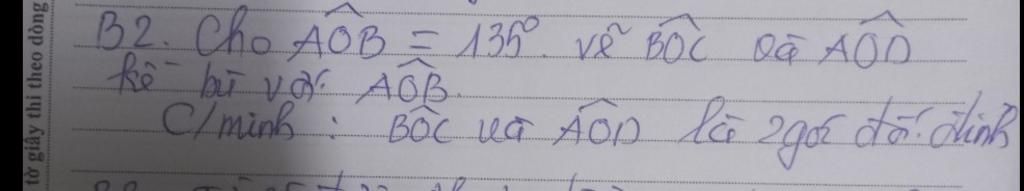 tờ giấy thi theo dòng
B2. Cho AOB = 135° vẽ BOC và AOD
kề bù với AOB.
C/minh : BOC và AOD là 2 góc đối đỉnh